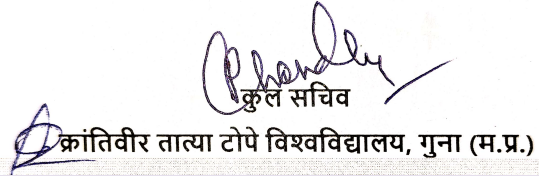 कुल सचिव
क्रांतिवीर तात्या टोपे विश्वविद्यालय, गुना (म.प्र.)